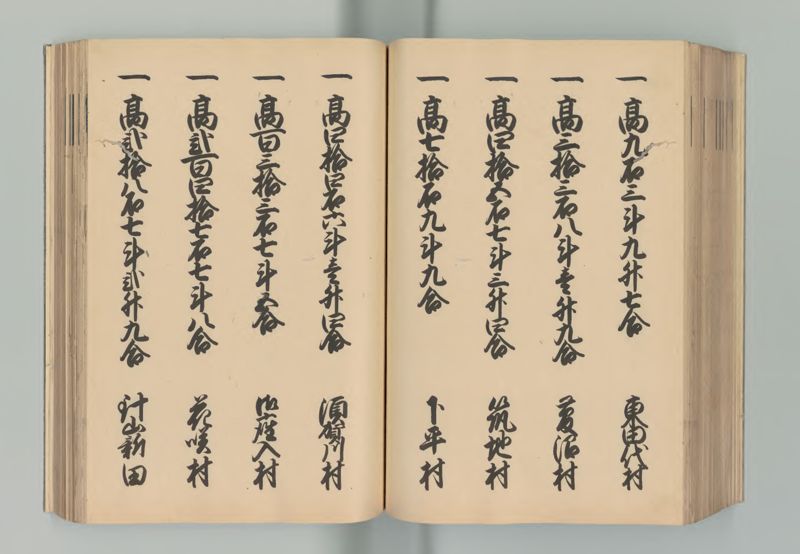 一 高九石三斗九升七合 東田代村
一 高三拾三石八斗壱升九合 菱沼村
一 高四拾五石七斗三升四合 筑地村
一 高七拾石九斗九合 下平村
一 高四拾四石六斗壱升四合 須賀川村
一 高百三拾三石七斗五合 御座入村
一 高弐百四拾七石七斗八合 花咲村
一 高弐拾八石七斗弐升九合 針山新田